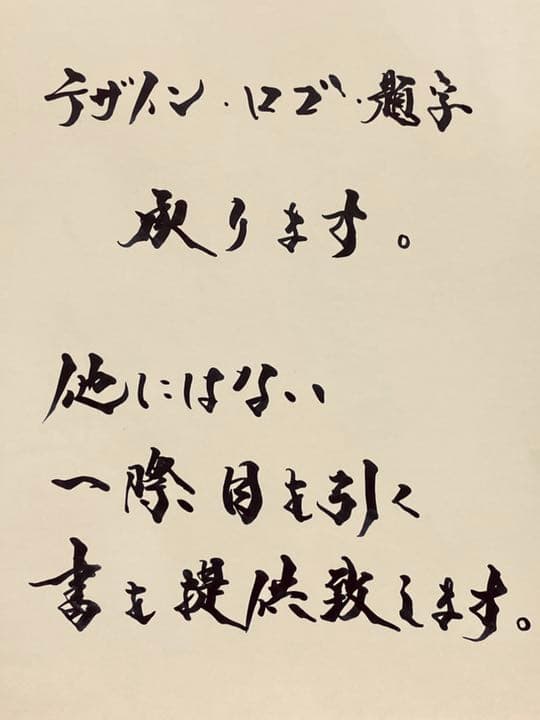 デザイン・ロゴ・題字
承ります。
他にはない
一際目を引く
書を提供致します。